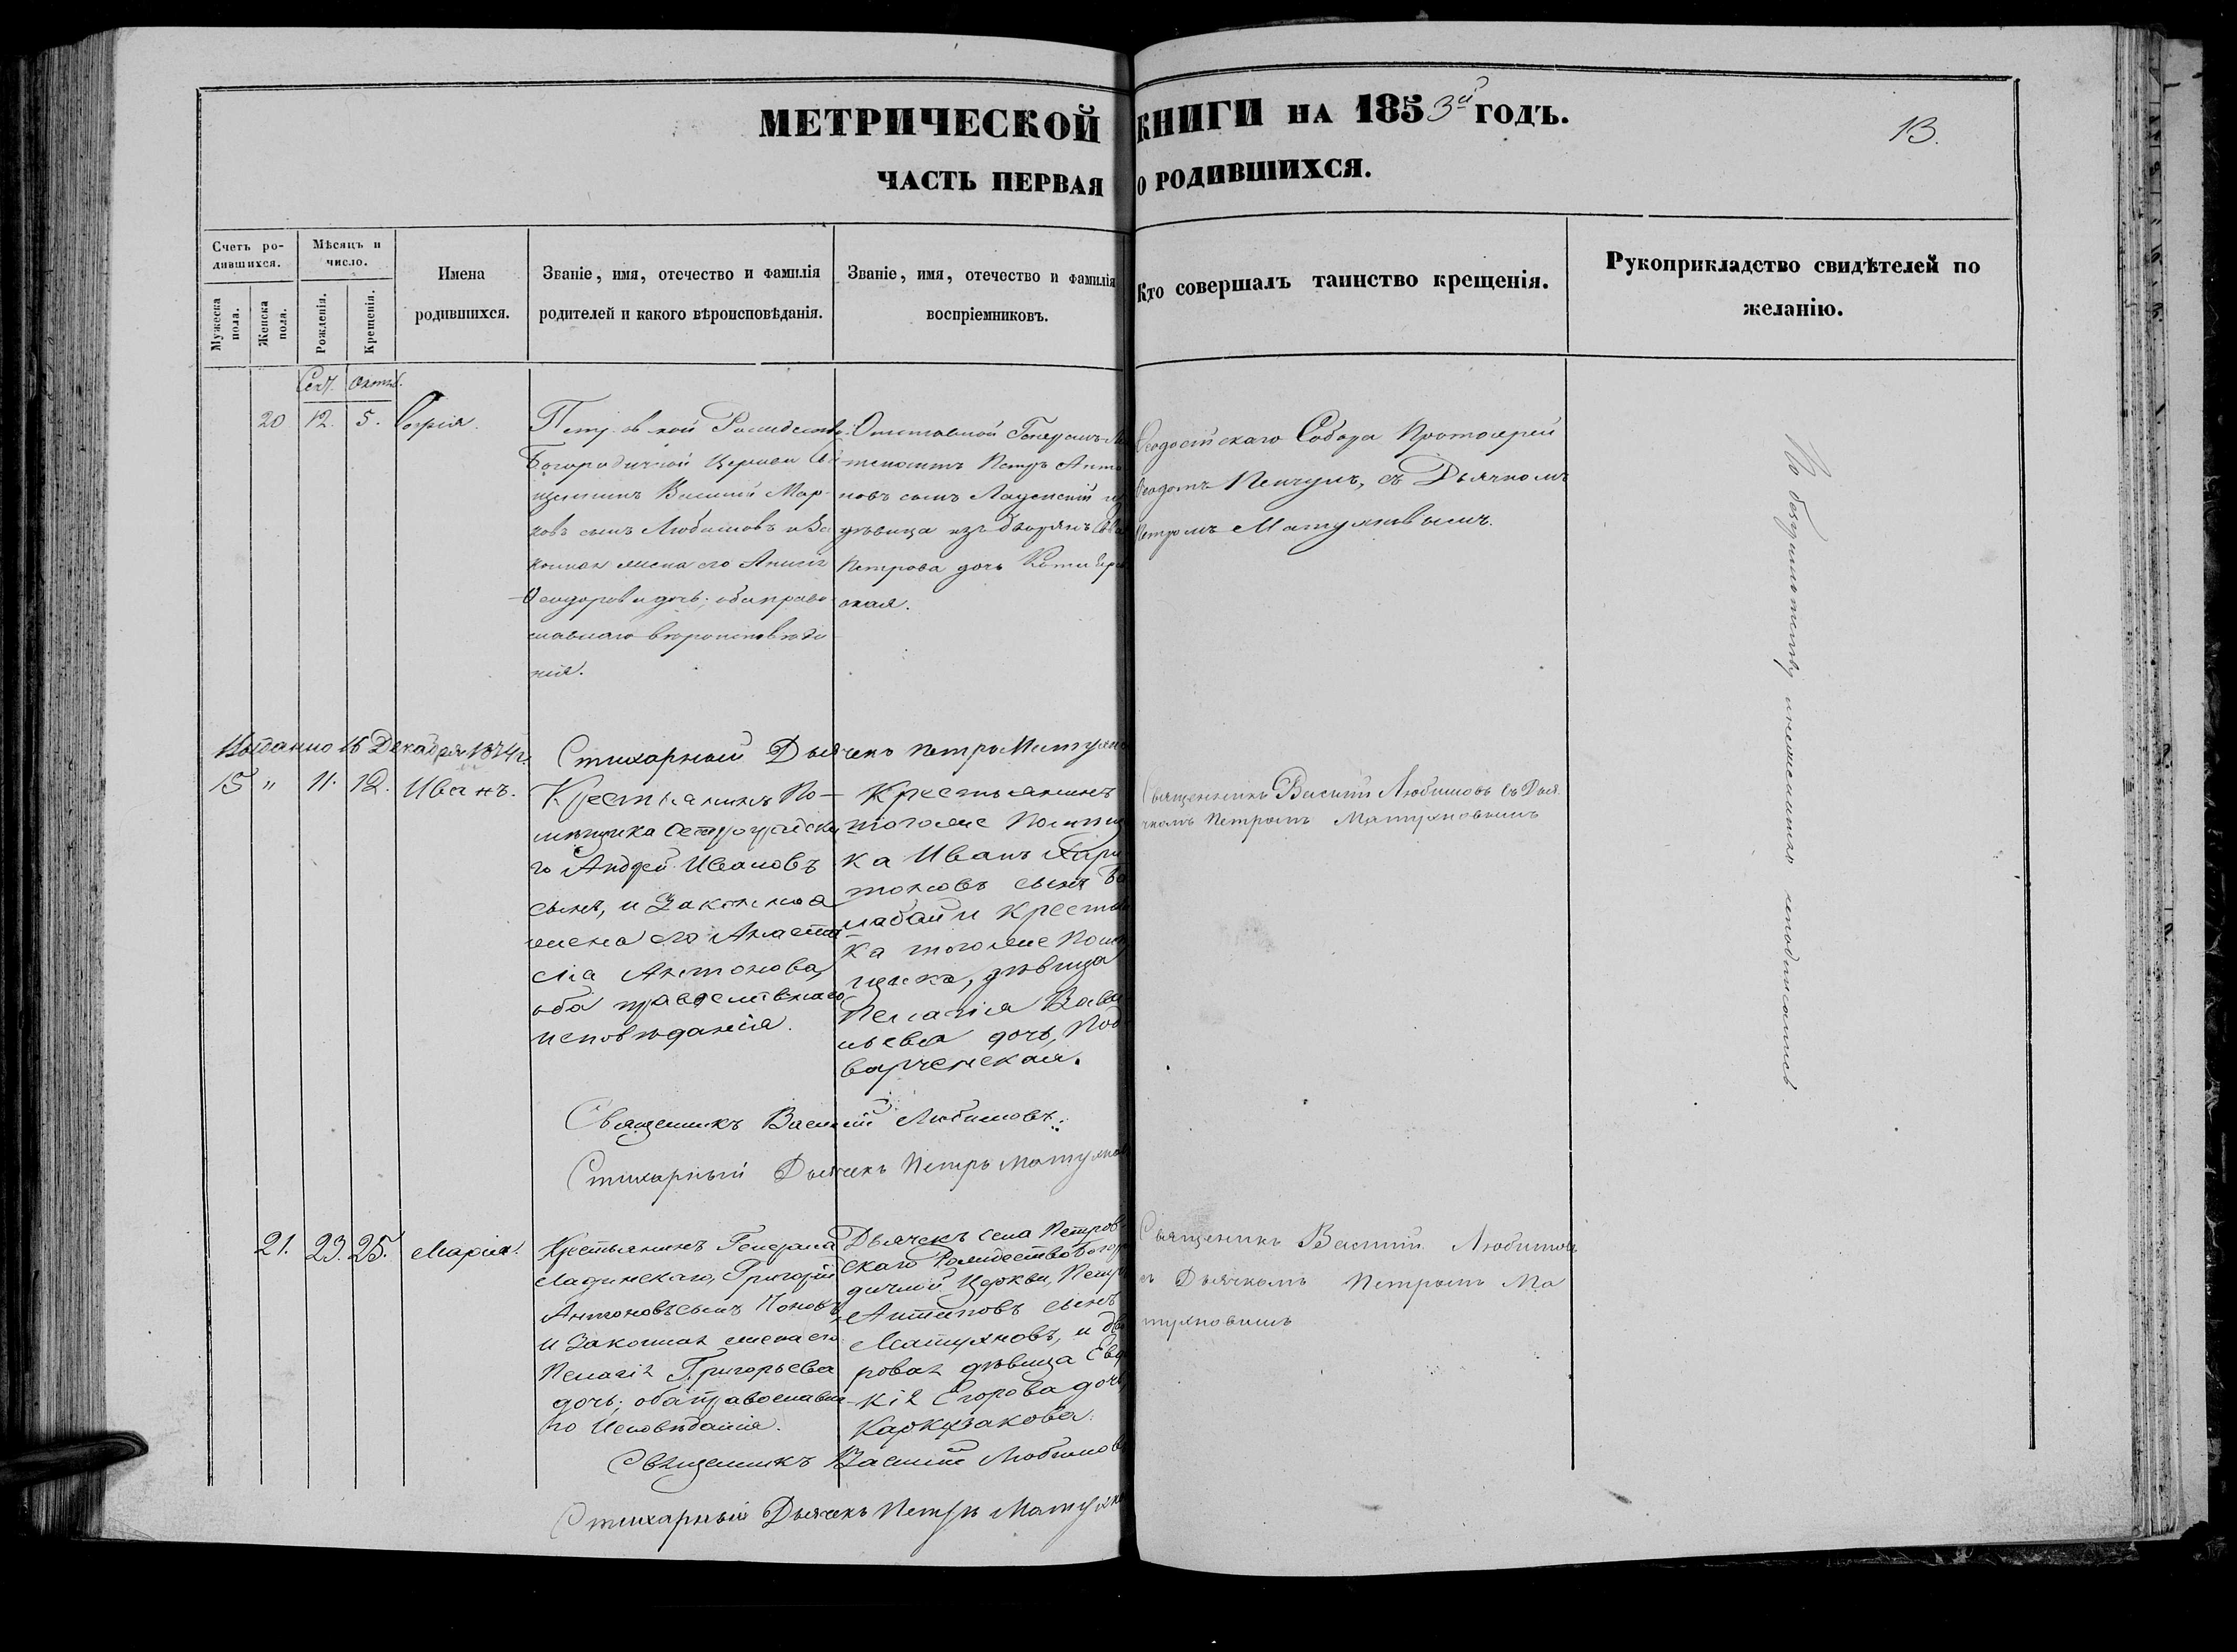 МЕТРИЧЕСКОЙ КНИГИ НА 1853й ГОДЪ.
13.
ЧАСТЬ ПЕРВАЯ О РОДИВШИХСЯ.
Счетъ ро-
дившихся.
Мужеска пола.
Женска пола.
Мѣсяцъ и
число.
Рожденія.
Крещенія.
Имена
родившихся.
Званіе, имя, отечество и фамилія
родителей и какого вѣроисповѣданія.
Званіе, имя, отечество и фамилія
воспріемниковъ.
Кто совершалъ таинство крещенія.
Рукоприкладство свидѣтелей по
желанію.
Сент. Октяб.
20 12. 5. Софія.
Петровской Рождество
Богородичной Церкви Свя
щенникъ Василій Мар-
ковъ сынъ Любимовъ и за
конная жена его
Ѳеодорова дочь; оба право
славнаго вѣроисповѣда
нія.
Отставной Генералъ-Ле
тенантъ Петръ Анто
новъ сынъ Ладинскій и
дѣвица изъ дворянъ
Петрова дочь
ская.
Ѳеодосійскаго Собора Протоіерей
Ѳеодотъ съ Дьячкомъ
Петромъ Матуяновымъ.
По безграмотству неподписались
Выданно 16 Декабря 1874 г.
Стихарный Дьячекъ Петръ Матуянов
15 " 11. 12. Иванъ.
Крестьянинъ По-
мѣщика
го Андрей Ивановъ
сынъ, и Законная
жена его Анаста
сіа Антонова,
оба православнаго
исповѣданія.
Крестьянинъ
тогоже Помѣщи
ка Иванъ Хари
тоновъ сынъ Ба
лабай и крестьян
ка тогоже Помѣ
щика, дѣвица
Пелагія Васи
льева дочь, Под
варченская.
Священникъ Василій Любимовъ съ Дья
чкомъ Петромъ Матуяновымъ
Священникъ Василій Любимовъ.
Стихарный Дьячекъ Петръ Матуянов
21. 23. 25. Марія.
Крестьянинъ Генерала
Ладинскаго, Григорій
Антоновъ сынъ
и Законная жена его
Пелагія Григорьева
дочь; оба православна
го Исповѣданія.
Дьячекъ села Петров-
скаго Рождество Богоро
дичной Церкви, Петръ
Антиповъ сынъ
Матуяновъ, и дво
ровая дѣвица Евдо
кія Егорова дочь,
Каркузакова.
Священникъ Василій Любимовъ
съ Дьячкомъ Петромъ Ма
туяновымъ
Священникъ Василій Любимовъ
Стихарный Дьячекъ Петръ Матуянов